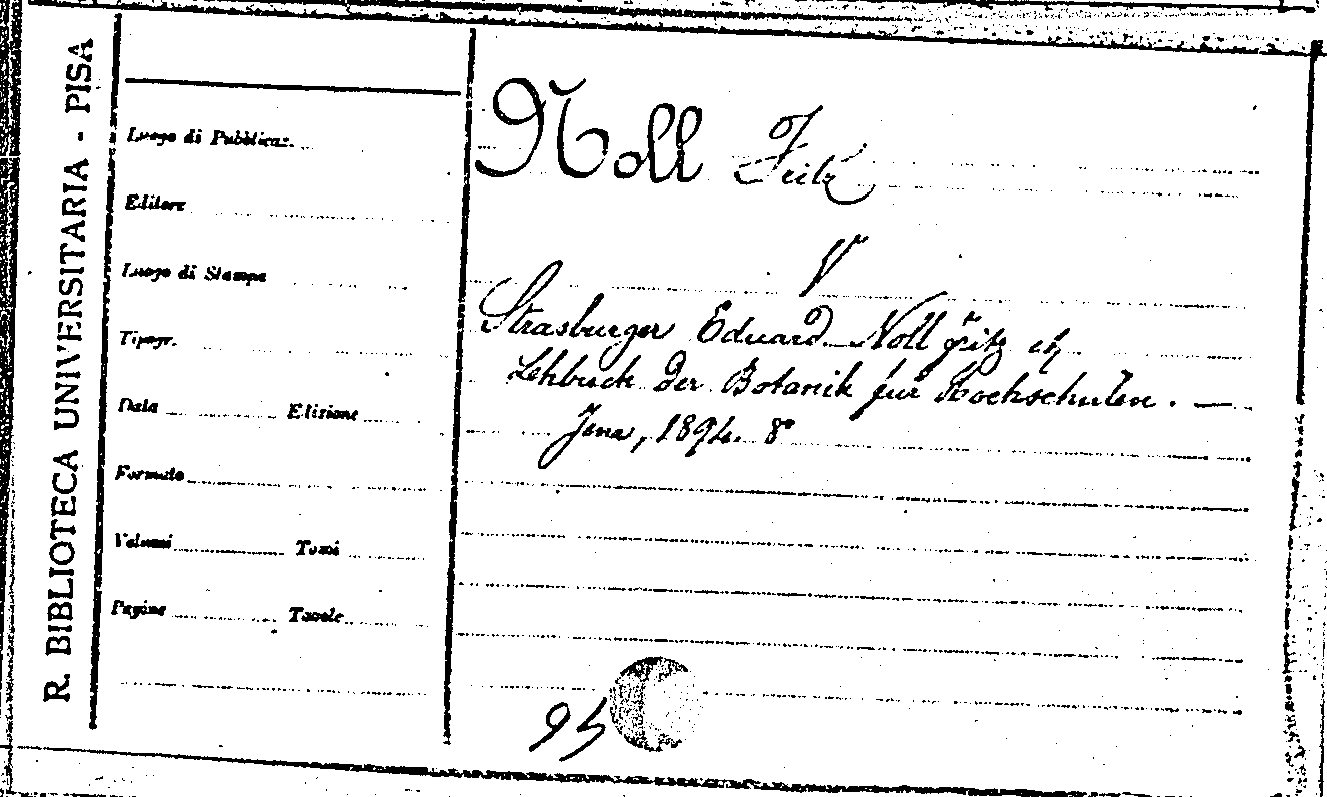 R. BIBLIOTECA UNIVERSITARIA - PISA
Luogo di Pubblicaz.
Editore
Luogo di Stampa
Tipogr.
Data Edizione
Formato
Volumi Tomi
Pagine Tavole
Noll Fritz
V
Strasburger Eduard Noll Fritz etc
Lehbuch der Botanik für Hochschulen. —
Jena, 1894. 8°
95